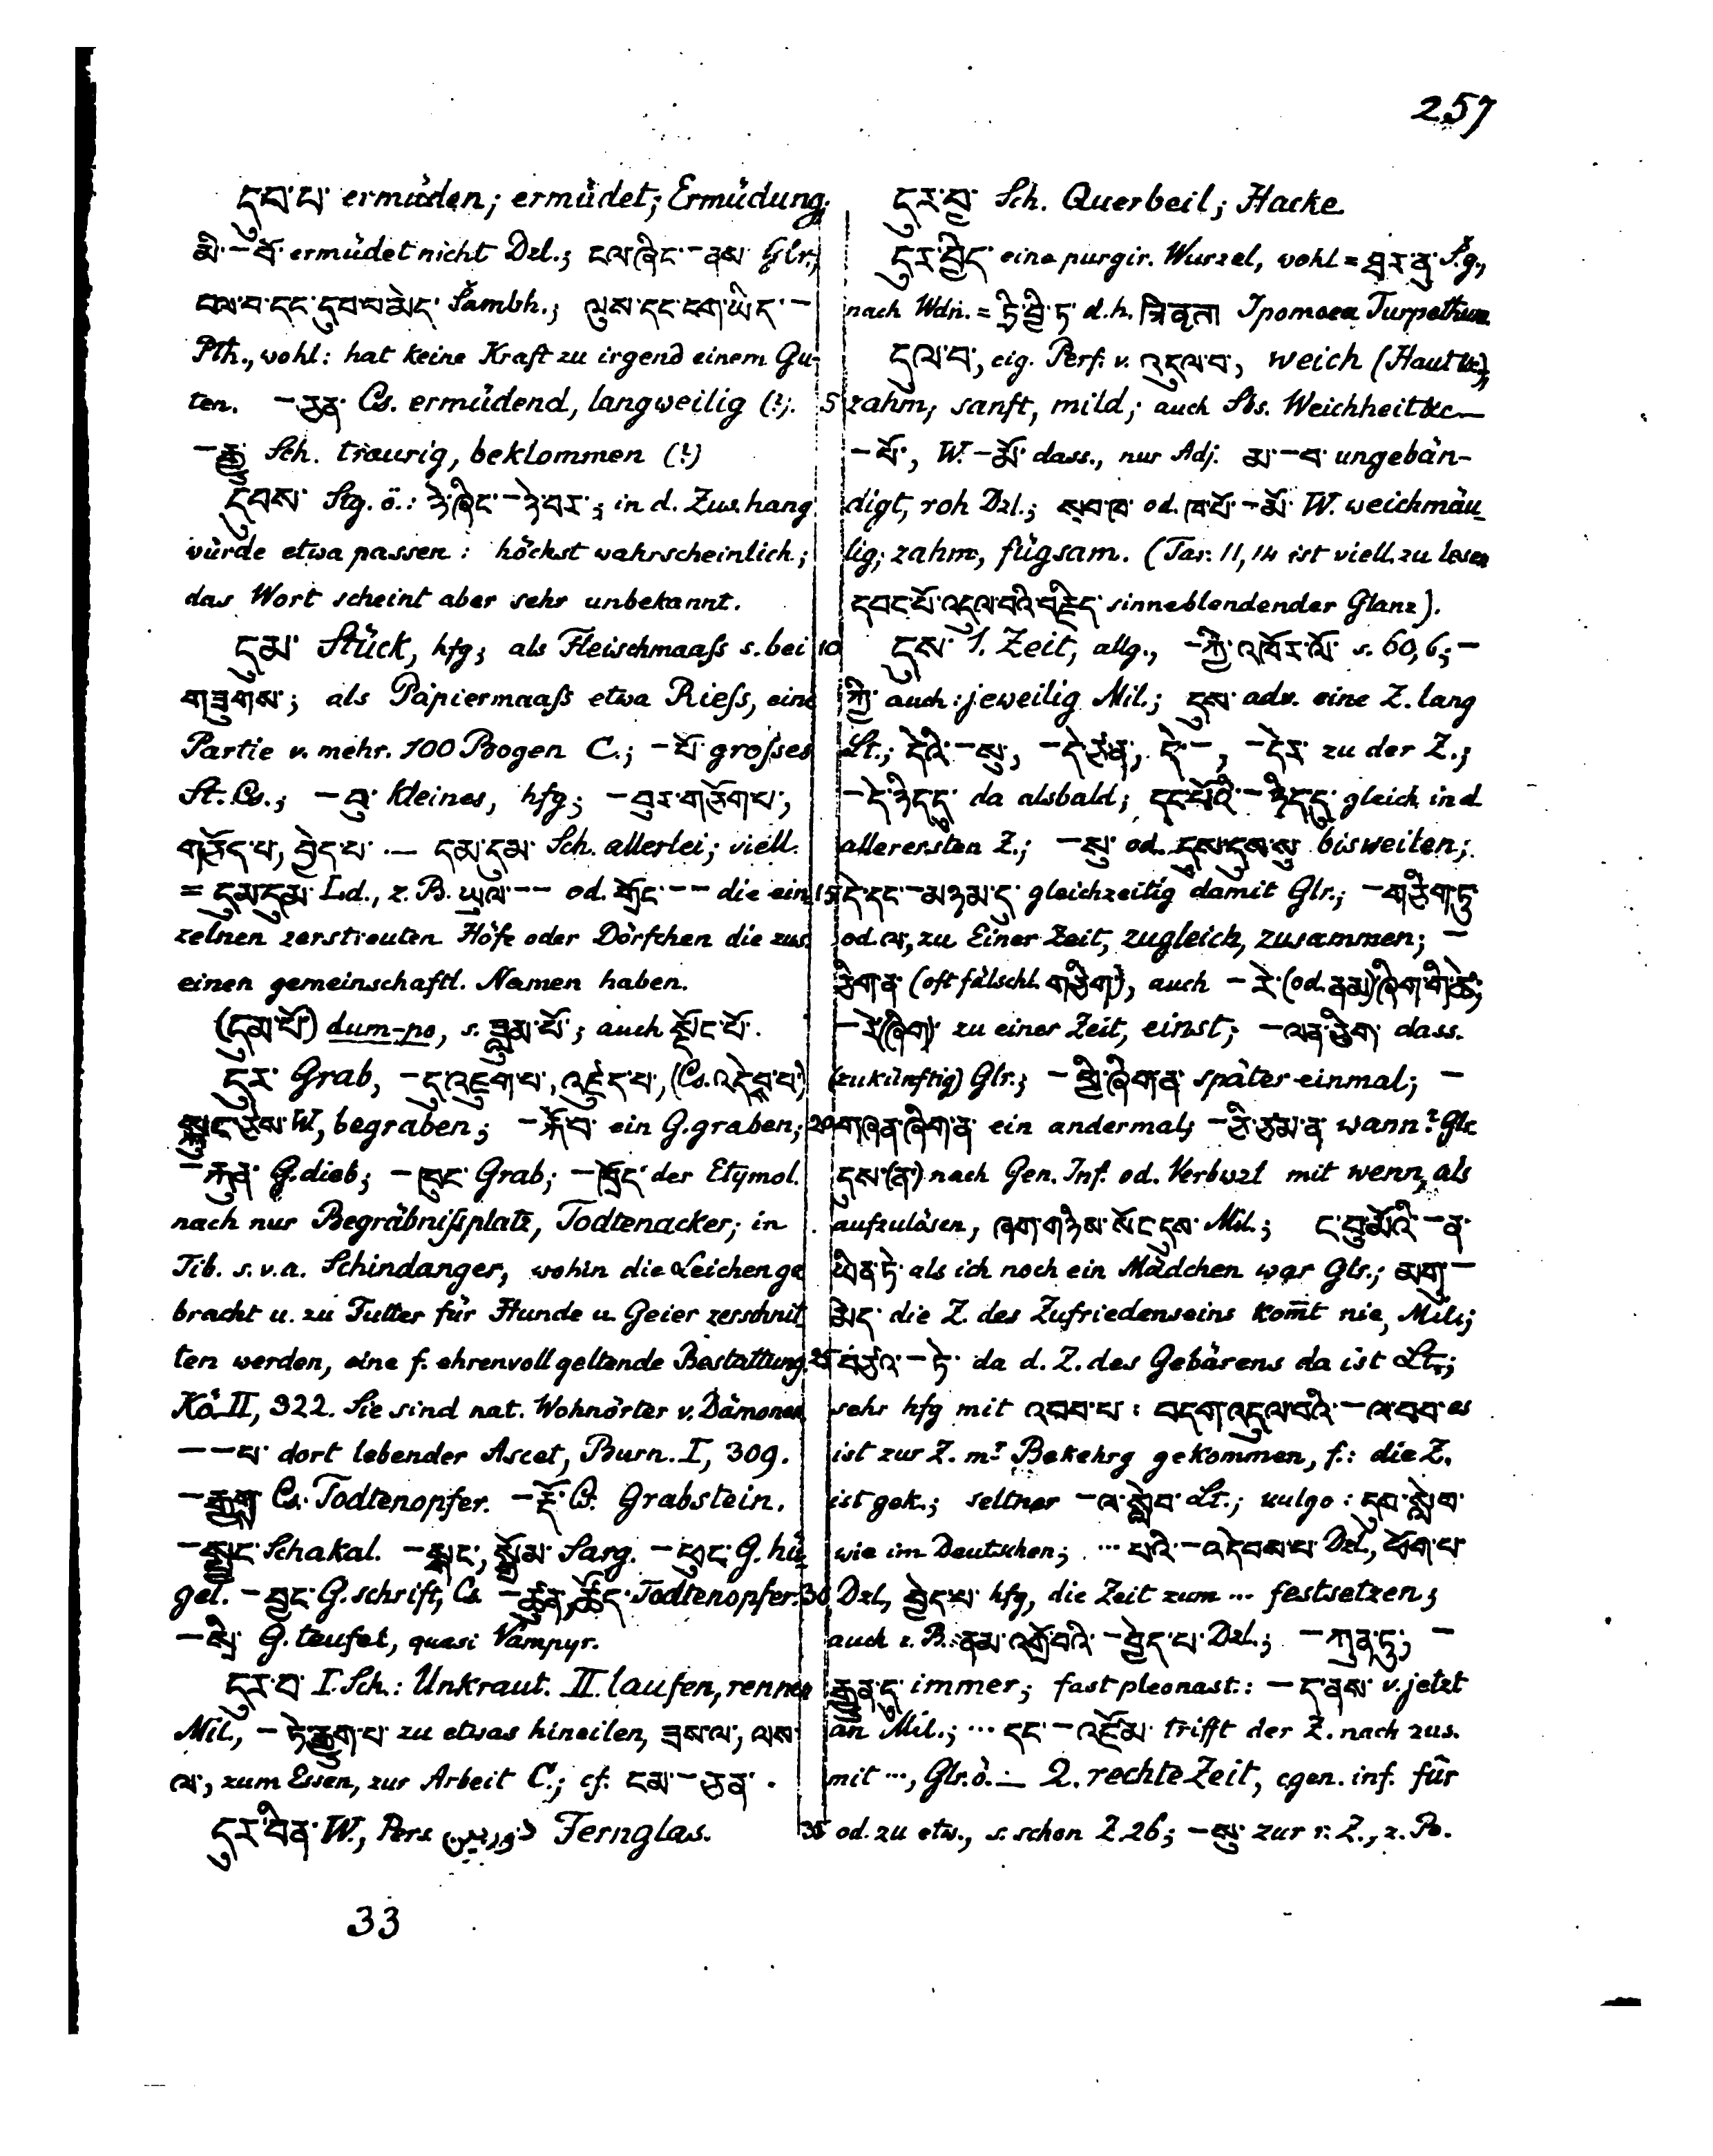 257
དུབ་པ་ ermüden; ermüdet; Ermüdung;
མི་ – བོ་ ermüdet nicht Dzl.; ངལ་ཞིང་ – ནས་ Glr.;
ངལ་བ་དང་དུབ་པ་མེད་ Šambh.; ལུས་དང་ངག་ཡིད་ –
Pth., wohl: hat keine Kraft zu irgend einem Gu-
ten. – ཅན་ Cs. ermüdend, langweilig (?).
Sch. traurig, beklommen (?)
དུབས་ Stg. ö.: ཉེ་ཞིང་ – ཉེ་བར་; in d. Zus.hang
würde etwa passen: höchst wahrscheinlich;
das Wort scheint aber sehr unbekannt.
དུམ་ Stück, hfg; als Fleischmaaß s. bei
གཟུགས་; als Papiermaaß etwa Rieß, eine
Partie v. mehr. 100 Bogen C.; – པོ་ großes
St. Cs.; – བུ་ kleines, hfg; – བུར་གཅོག་པ་,
གཅོད་པ་, བྱེད་པ་ . — དུམ་དུམ་ Sch. allerlei; viell.
= དུམ་དུམ་ Ld., z. B. ཡུལ་ – – od. གྲོང་ – – die ein-
zelnen zerstreuten Höfe oder Dörfchen die zus.
einen gemeinschaftl. Namen haben.
(དུམ་པོ་) dum-po, s. ཟླུམ་པོ་; auch སྡོང་པོ་.
དུར་ Grab, – དུ་འཇུག་པ་, (Cs. འདེབས་པ་)
W., begraben; – རྐོ་བ་ ein G. graben;
– རྐུན་ G.dieb; – ཁུང་ Grab; – ཁྲོད་ der Etymol.
nach nur Begräbnißplatz, Todtenacker; in
Tib. s. v. a. Schindanger, wohin die Leichen ge
bracht u. zu Futter für Hunde u. Geier zerschnit
ten werden, eine f. ehrenvoll geltende Bestattung.
Kö. II, 322. Sie sind nat. Wohnörter v. Dämonen
– – པ་ dort lebender Ascet, Burn. I, 309.
Cs. Todtenopfer. – རྡོ་ Cs. Grabstein.
– སྤྱང་ Schakal. – སྒམ་, སྒྲོམ་ Sarg. – ཕུང་ G. hü
gel. – བྱང་ G.schrift, Cs. Todtenopfer.
– སྲི་ G. teufel, quasi Vampyr.
དུར་བ་ I. Sch.: Unkraut. II. laufen, rennen
Mil., – ཏེ་རྒྱུག་པ་ zu etwas hineilen, ཟས་ལ་, ལས་
ལ་, zum Essen, zur Arbeit C.; cf. ངམ་ – ཅན་ .
དུར་བིན་ W., Pers دوربین Fernglas.
33
དུར་བྱ་ Sch. Querbeil; Hacke.
དུར་བྱིད་ eine purgir. Wurzel, wohl = Š.g.,
nach Wdn. = ཏྲི་བྲྀ་ཏ་ d. h. त्रिवृता Ipomoea Turpethum
དུལ་བ་, eig. Perf. v. འདུལ་བ་, weich (Haut &c),
5 zahm, sanft, mild; auch Sbs. Weichheit &c —
– པོ་, W. – མོ་ dass., nur Adj. མ་ – བ་ ungebän-
digt, roh Dzl.; od. ཁ་པོ་ – མོ་ W. weichmäu-
lig; zahm, fügsam. (Tar. 11, 14 ist viell. zu lesen
དབང་པོ་འདུལ་བའི་བརྗིད་ sinneblendender Glanz).
10 དུས་ 1. Zeit, allg., – ཀྱི་འཁོར་ལོ་ s. 60, 6; –
ཀྱི་ auch: jeweilig Mil.; དུས་ adv. eine Z. lang
Lt.; དེའི་ – སུ་, – དེ་ཙ་ན་, དེ་ – , – དེར་ zu der Z.;
– དེ་ཉིད་དུ་ da alsbald; དང་པོའི་ – ཉིད་དུ་ gleich in d.
allerersten Z.; – སུ་ od. དུས་དུས་སུ་ bisweilen;
15 དེ་དང་ – མཉམ་དུ་ gleichzeitig damit Glr.; – གཅིག་ཏུ་
od. ལ་, zu Einer Zeit, zugleich, zusammen; –
ཅིག་ན་ (oft fälschl. གཅིག་), auch – རེ་ (od. ནམ་) ཞིག་གི་ཚེ་,
– རེ་(ཞིག་) zu einer Zeit, einst; – ལན་ཅིག་ dass.
(zukünftig) Glr.; – ཕྱི་ཞིག་ན་ später einmal; –
20 གཞན་ཞིག་ན་ ein andermal; – ཅི་ཙམ་ན་ wann? Glr.
དུས་(ན་) nach Gen. Inf. od. Verbwzl mit wenn, als
aufzulösen, ཞག་གཉིས་སོང་དུས་ Mil.; ང་བུ་མོའི་ – ན་
ཡིན་ཏེ་ als ich noch ein Mädchen war Glr.; –
མེད་ die Z. des Zufriedenseins kom̅t nie, Mil.;
25 བཙའ་ – ཏེ་ da d. Z. des Gebärens da ist Lt.;
sehr hfg mit འབབ་པ་: བདག་འདུལ་བའི་ – ལ་བབ་ es
ist zur Z. mr. Bekehrg gekommen, f.: die Z.
ist gek.; seltner – ལ་སླེབ་ Lt.; vulgo: དུས་སླེབ་
wie im Deutschen; ... པའི་ – འདེབས་པ་ Dzl,
30 Dzl, བྱེད་པ་ hfg, die Zeit zum ... festsetzen;
auch z. B. ནམ་འགྲོ་བའི་ – བྱེད་པ་ Dzl.; – ཀུན་ཏུ་, –
རྒྱུན་དུ་ immer; fast pleonast.: – ད་ནས་ v. jetzt
an Mil.; ... དང་ – འཛོམ་ trifft der Z. nach zus.
mit ..., Glr. ö. — 2. rechte Zeit, c. gen. inf. für
35 od. zu etw., s. schon Z. 26; – སུ་ zur r. Z., z. B.